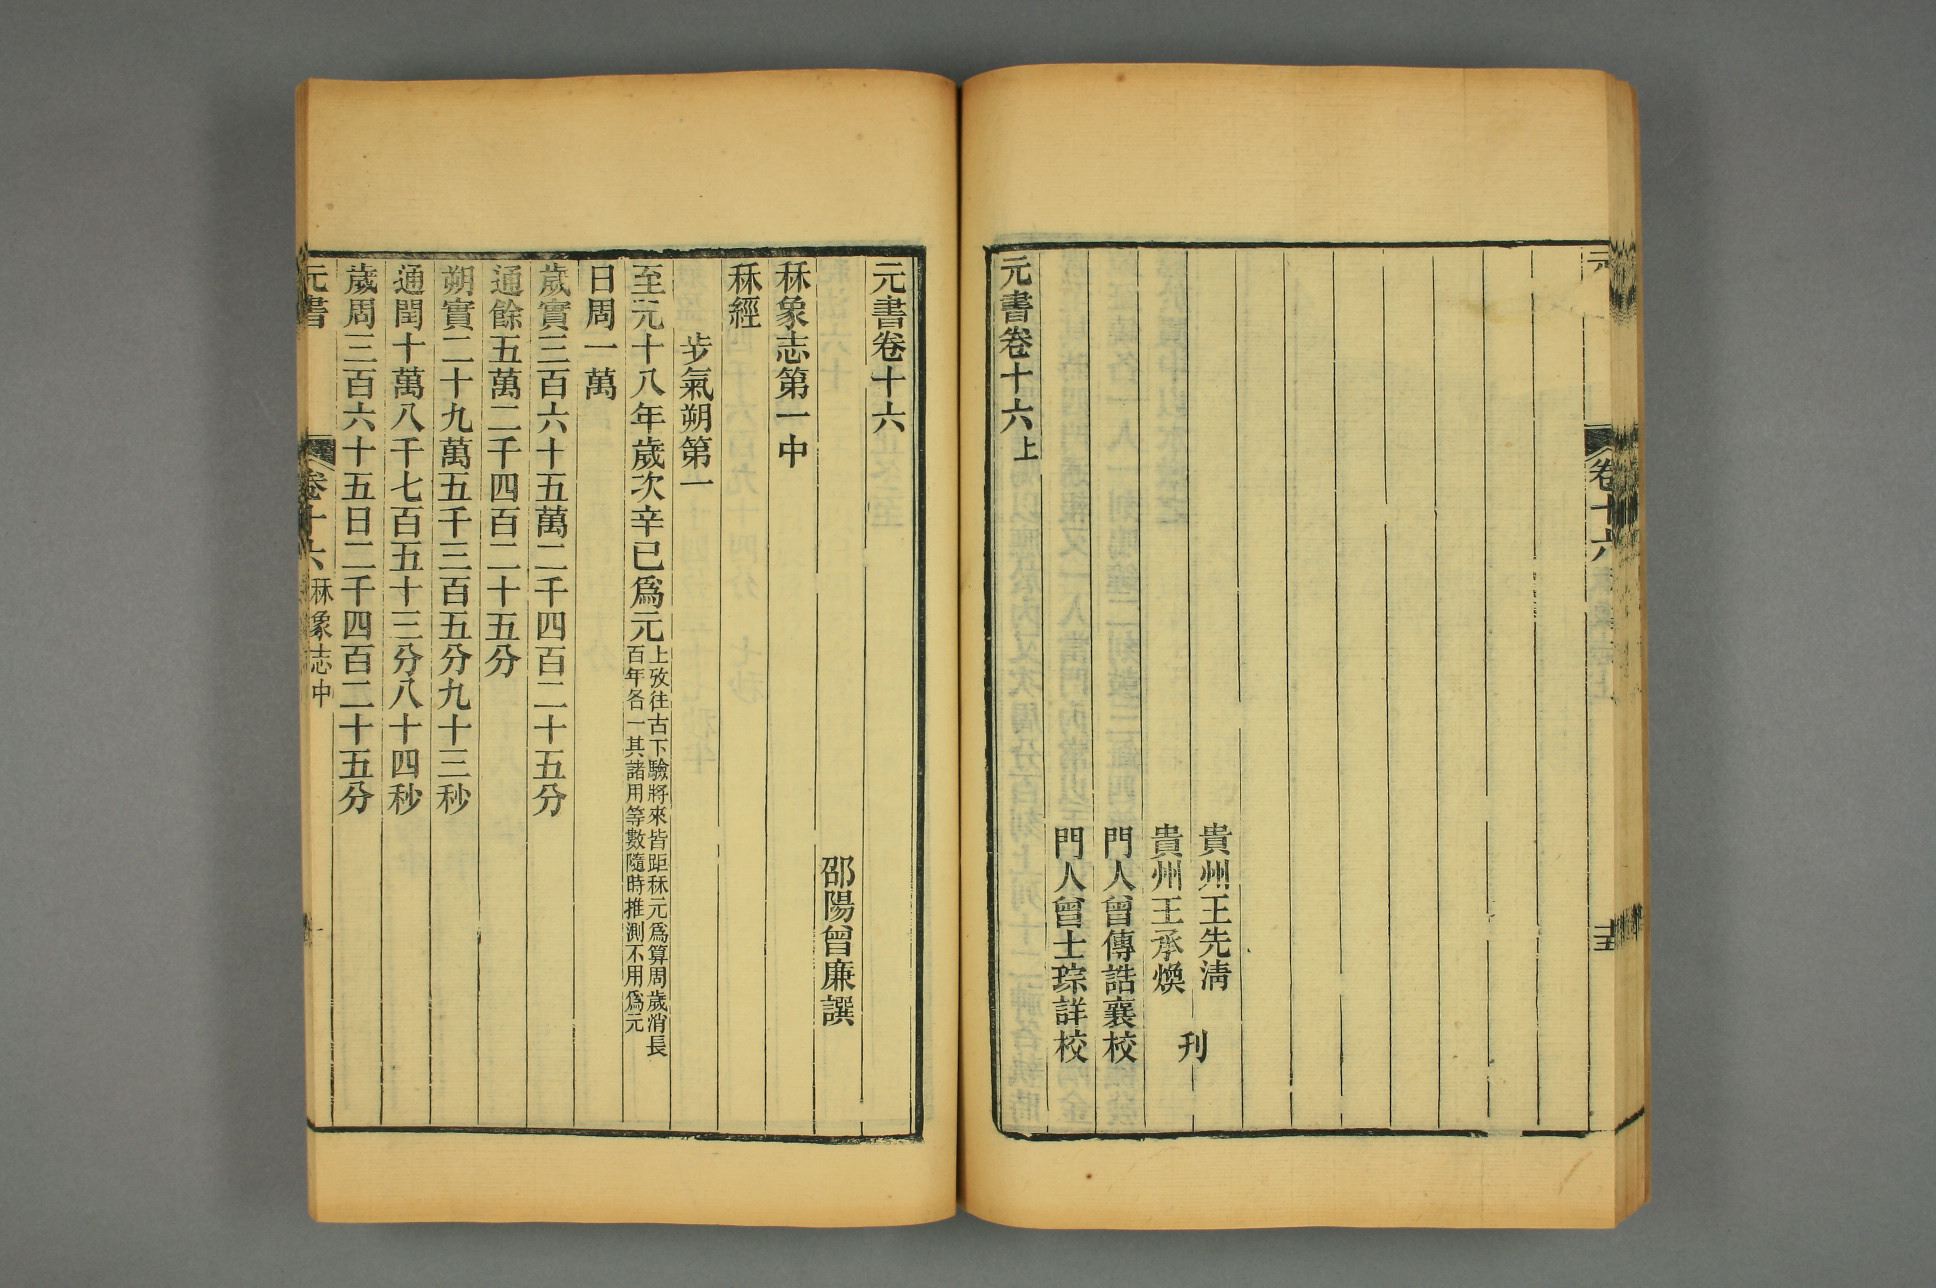 貴州王先清
貴州王承煥
刊
門人曾傳誥襄校
門人曾士琮詳校
元書卷十六上
卷十六
十五
元書卷十六
邵陽曾廉譔
秝象志第一中
秝經
步氣朔第一
至元十八年歲次辛巳爲元上攷往古下驗將來皆距秝元爲算周歲消長
百年各一其諸用等數隨時推測不用爲元
日周一萬
歲實三百六十五萬二千四百二十五分
通餘五萬二千四百二十五分
朔實二十九萬五千三百五分九十三秒
通閏十萬八千七百五十三分八十四秒
歲周三百六十五日二千四百二十五分
元書 卷十六秝象志中 一